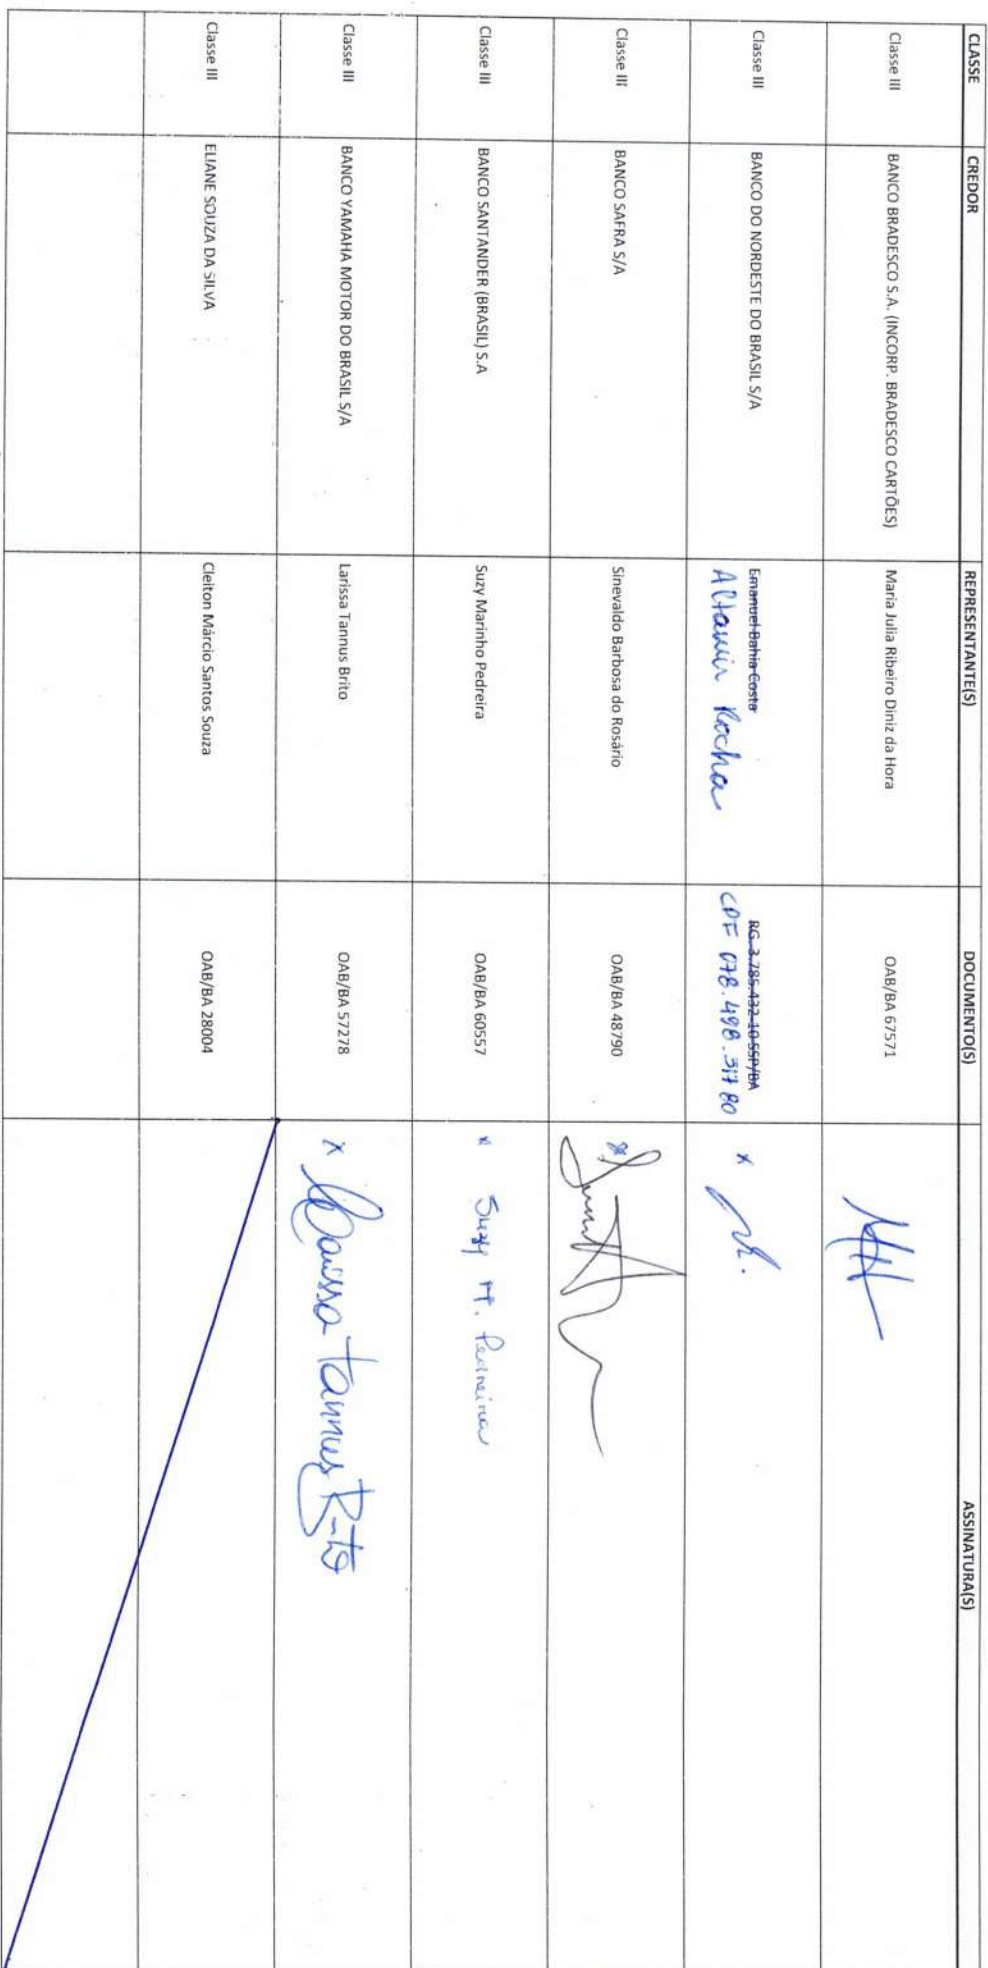 CLASSE CREDOR REPRESENTANTE(S) DOCUMENTO(S) ASSINATURA(S)
Classe III BANCO BRADESCO S.A. (INCORP. BRADESCO CARTÕES) Maria Julia Ribeiro Diniz da Hora OAB/BA 67571
Classe III BANCO DO NORDESTE DO BRASIL S/A Emanuel Bahia Costa RG 3.785.432-10 SSP/BA x
Altamir Rocha CPF 078.498.517 80
Classe III BANCO SAFRA S/A Sinevaldo Barbosa do Rosário OAB/BA 48790 x
Classe III BANCO SANTANDER (BRASIL) S.A Suzy Marinho Pedreira OAB/BA 60557 x Suzy M. Pedreira
Classe III BANCO YAMAHA MOTOR DO BRASIL S/A Larissa Tannus Brito OAB/BA 57278 x Larissa Tannus Brito
Classe III ELIANE SOUZA DA SILVA Cleiton Márcio Santos Souza OAB/BA 28004